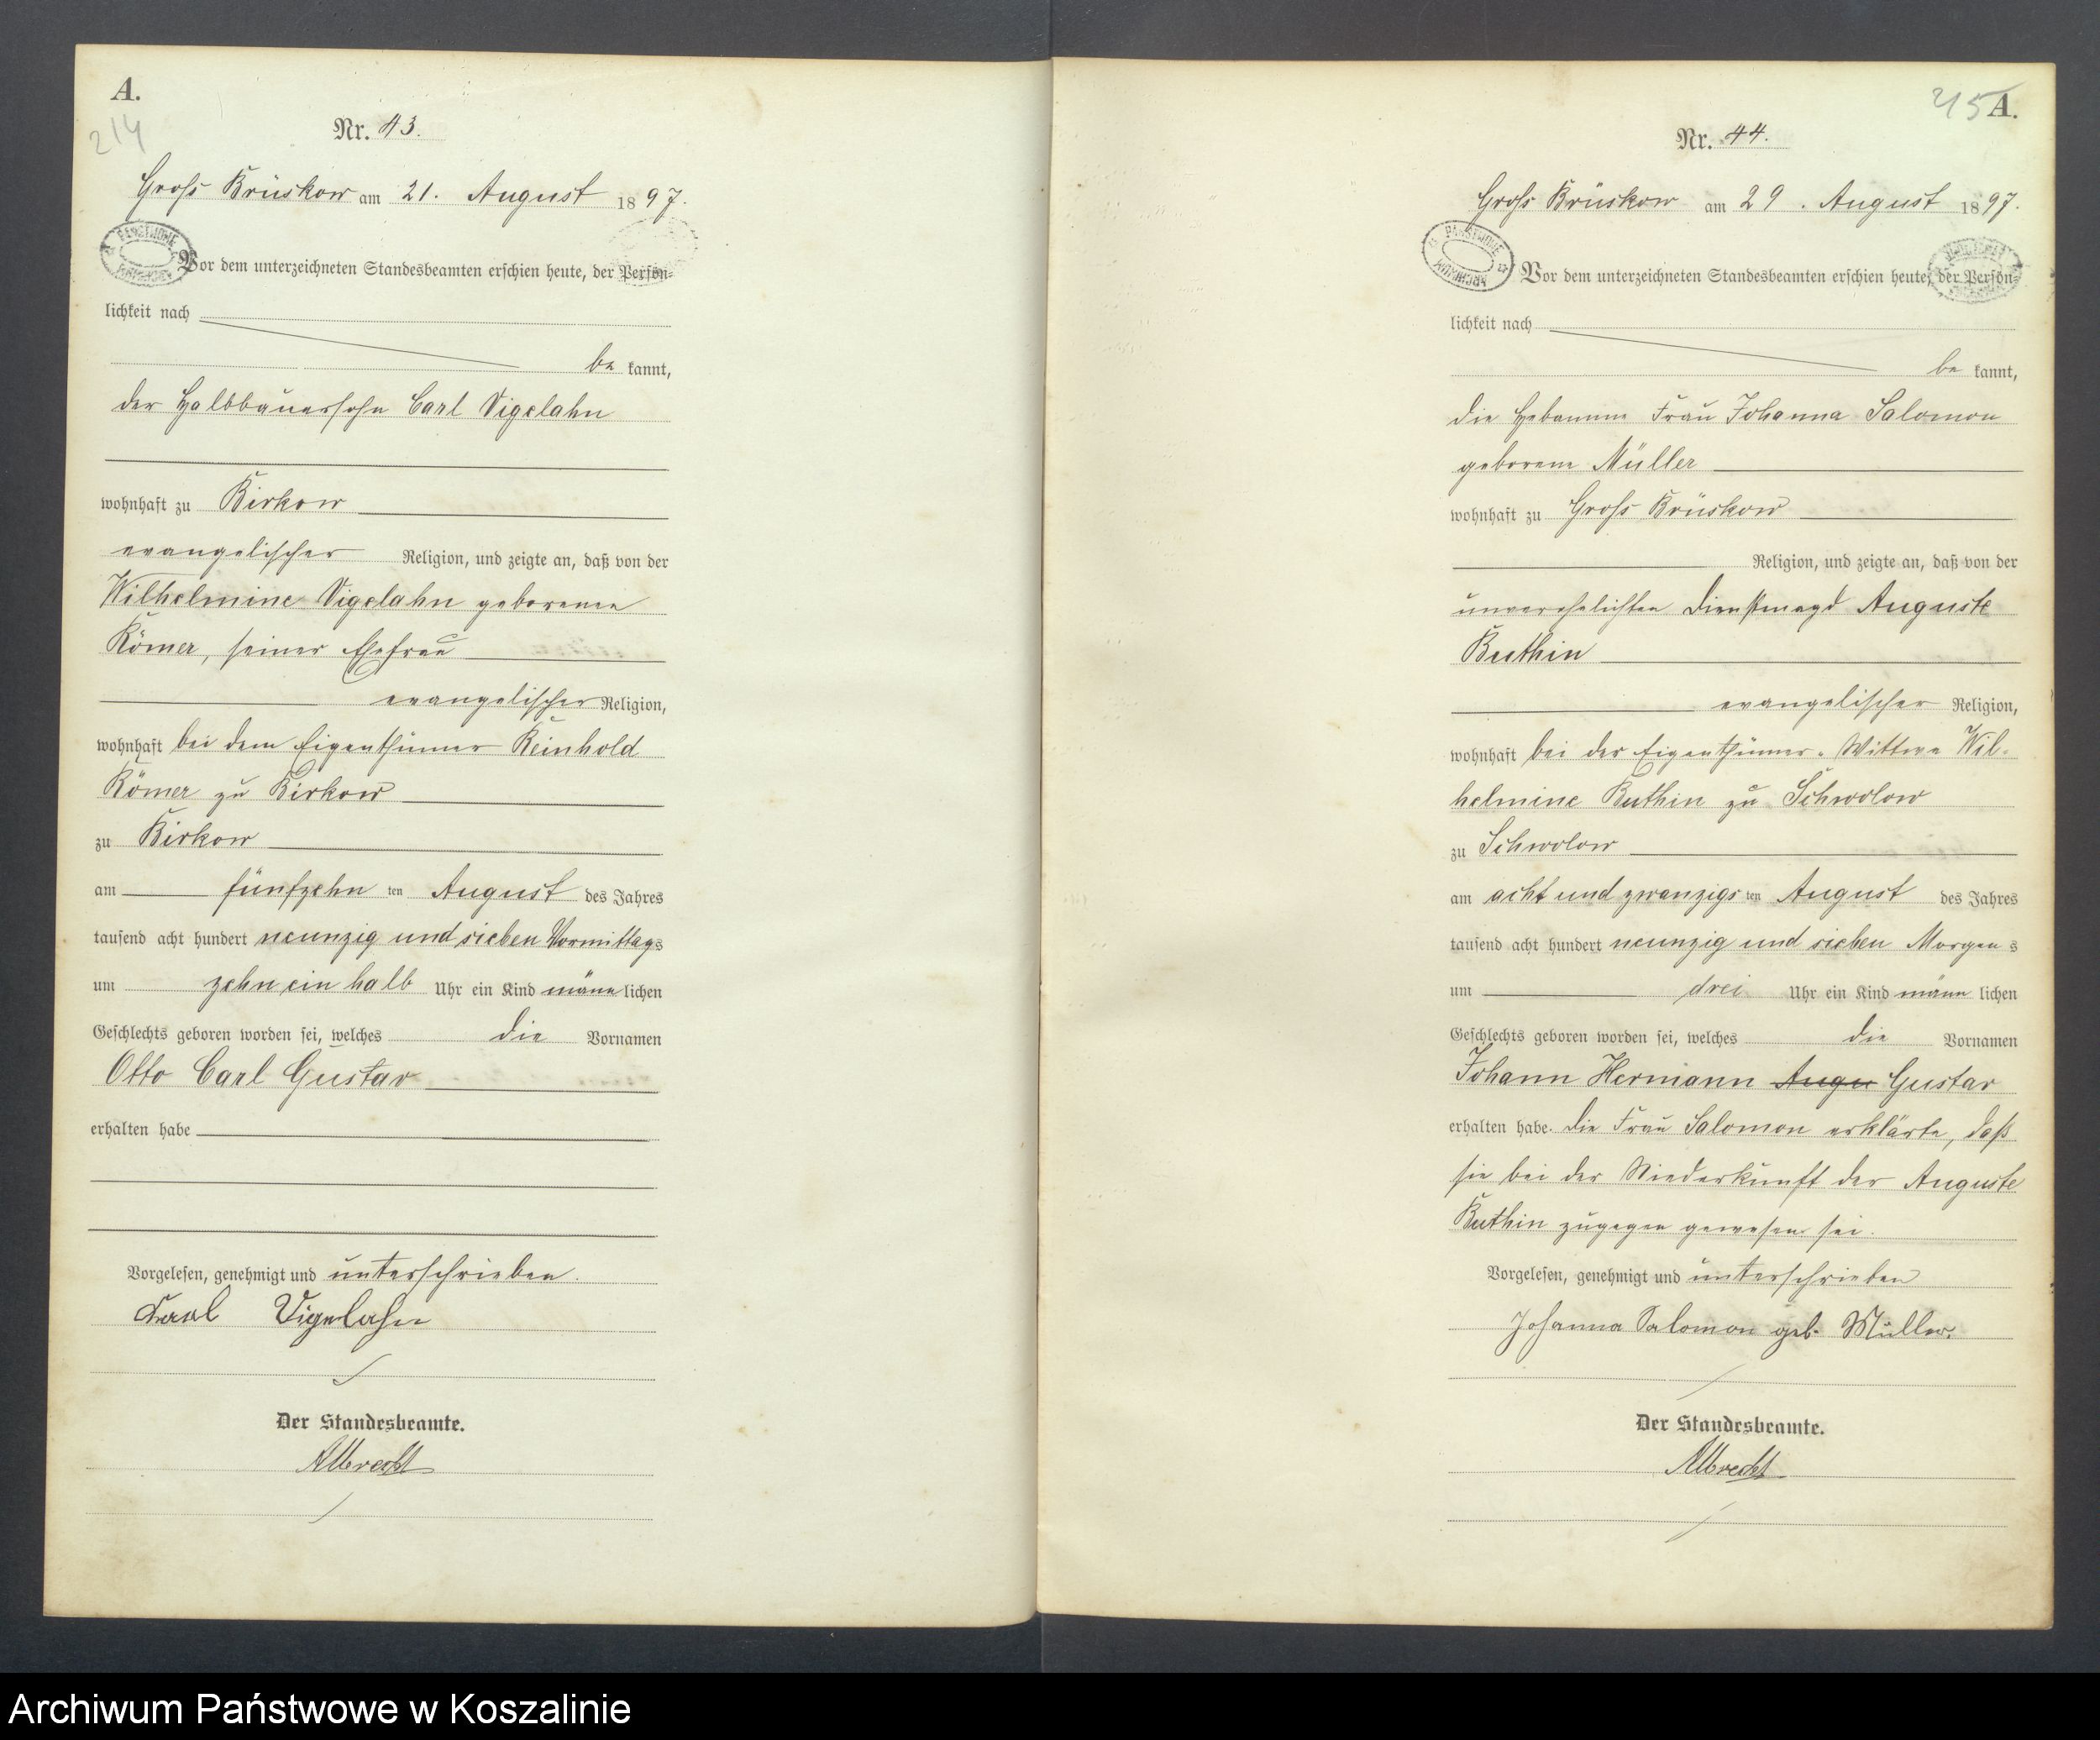 A.
214
Nr. 43.
Groß Brüskow am 21. August 1897.
Vor dem unterzeichneten Standesbeamten erschien heute, der Persön-
lichkeit nach
be kannt,
der Halbbauersohn Carl Vigelahn
wohnhaft zu Birkow
evangelischer Religion, und zeigte an, daß von der
Wilhelmine Vigelahn geborenen
Römer, seiner Ehefrau
evangelischer Religion,
wohnhaft bei dem Eigenthümer Reinhold
Römer zu Birkow
zu Birkow
am fünfzehn ten August des Jahres
tausend acht hundert neunzig und sieben Vormittags
um zehn ein halb Uhr ein Kind männ lichen
Geschlechts geboren worden sei, welches die Vornamen
Otto Carl Gustav
erhalten habe
Vorgelesen, genehmigt und unterschrieben.
Carl Vigelahn
Der Standesbeamte.
Albrecht
A.
Nr. 44.
Groß Brüskow am 29. August 1897.
PAŃSTWOWE ARCHIWUM
Vor dem unterzeichneten Standesbeamten erschien heute, der Persön-
lichkeit nach
be kannt,
die Hebamme Frau Johanna Salomon
geborene Müller
wohnhaft zu Groß Brüskow
Religion, und zeigte an, daß von der
unverehelichten Dienstmagd Auguste
Buthin
evangelischer Religion,
wohnhaft bei der Eigenthümer-Wittwe Wil-
helmine Buthin zu Schwolow
zu Schwolow
am acht und zwanzigs ten August des Jahres
tausend acht hundert neunzig und sieben Morgens
um drei Uhr ein Kind männ lichen
Geschlechts geboren worden sei, welches die Vornamen
Johann Hermann Augu Gustav
erhalten habe. Die Frau Salomon erklärte, daß
sie bei der Niederkunft der Auguste
Buthin zugegen gewesen sei.
Vorgelesen, genehmigt und unterschrieben
Johanna Salomon geb. Müller.
Der Standesbeamte.
Albrecht
Archiwum Państwowe w Koszalinie